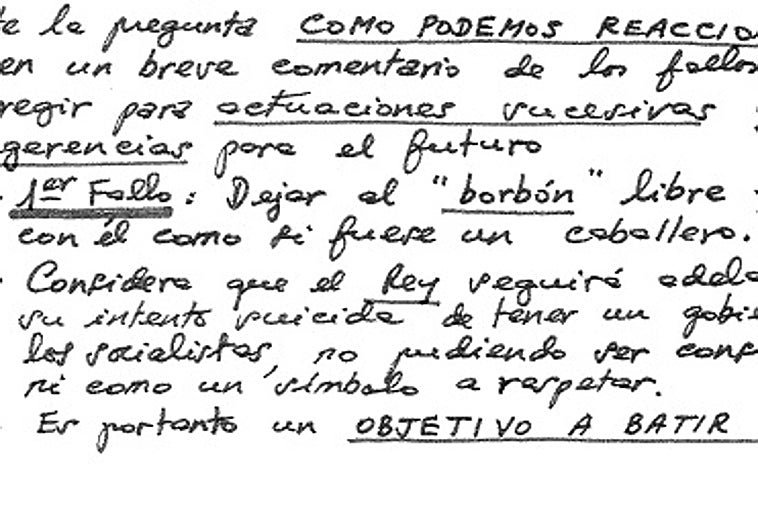 te la pregunta COMO PODEMOS REACCIO
en un breve comentario de los fallos
regir para actuaciones sucesivas y
gerencias para el futuro
1er Fallo: Dejar al "borbón" libre y
con él como si fuese un caballero.
Considera que el Rey seguirá adela
su intento suicida de tener un gobie
los socialistas, no pudiendo ser cons
ni como un símbolo a respetar.
Es portanto un OBJETIVO A BATIR